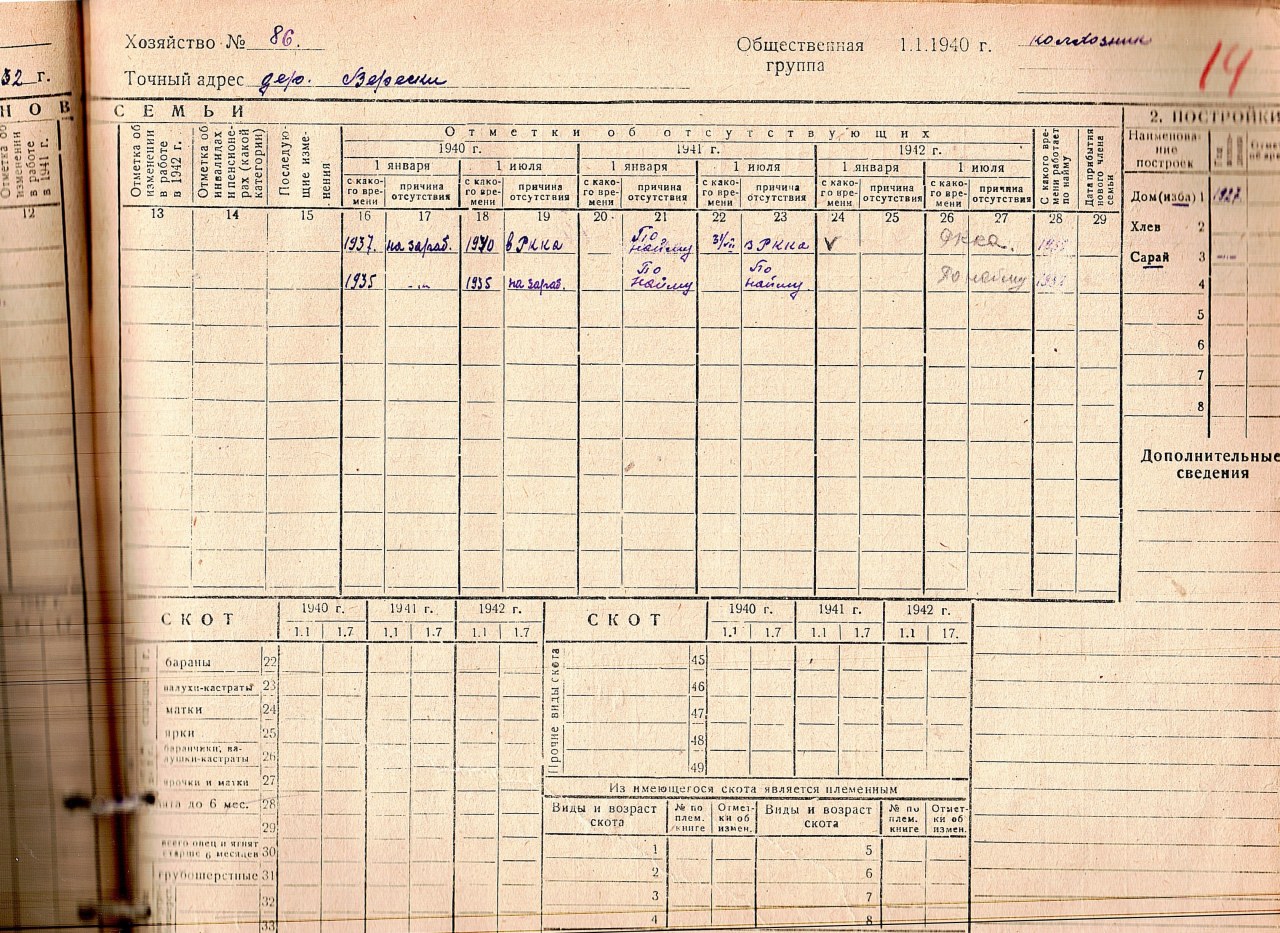 Хозяйство № 86.
Общественная группа 1.1.1940 г. колхозник
14
32 г.
Точный адрес дер. Верески
Н О В
С Е М Ь И
2. ПОСТРОЙКИ
Отметки об отсутствующих
1940 г. 1941 г. 1942 г.
1 января 1 июля 1 января 1 июля 1 января 1 июля
Отметка об изменении в работе в 1941 г.
Отметка об изменении в работе в 1942 г.
Отметка об инвалидах и пенсионерах (какой категории)
Последующие изменения
с какого времени причина отсутствия с какого времени причина отсутствия с какого времени причина отсутствия с какого времени причина отсутствия с какого времени причина отсутствия с какого времени причина отсутствия
С какого времени работает по найму
Дата прибытия нового члена семьи
Наименование построек
12 13 14 15 16 17 18 19 20 21 22 23 24 25 26 27 28 29
1937. на зараб. 1940 в РККА По найму в РККА V
1935 -"- 1935 на зараб. По найму По найму По найму
Дом (изба) 1 1927
Хлев 2
Сарай 3
4
5
6
7
8
Дополнительные сведения
СКОТ 1940 г. 1941 г. 1942 г.
1.1 1.7 1.1 1.7 1.1 1.7
бараны 22
валухи-кастраты 23
матки 24
ярки 25
баранчики, валушки-кастраты 26
ярочки и матки 27
до 6 мес. 28
29
всего овец и ягнят старше 6 месяцев 30
грубошерстные 31
32
33
СКОТ 1940 г. 1941 г. 1942 г.
1.1 1.7 1.1 1.7 1.1 17.
Прочие виды скота
45
46
47
48
49
Из имеющегося скота является племенным
Виды и возраст скота № по плем. книге Отметки об измен. Виды и возраст скота № по плем. книге Отметки об измен.
1 5
2 6
3 7
4 8